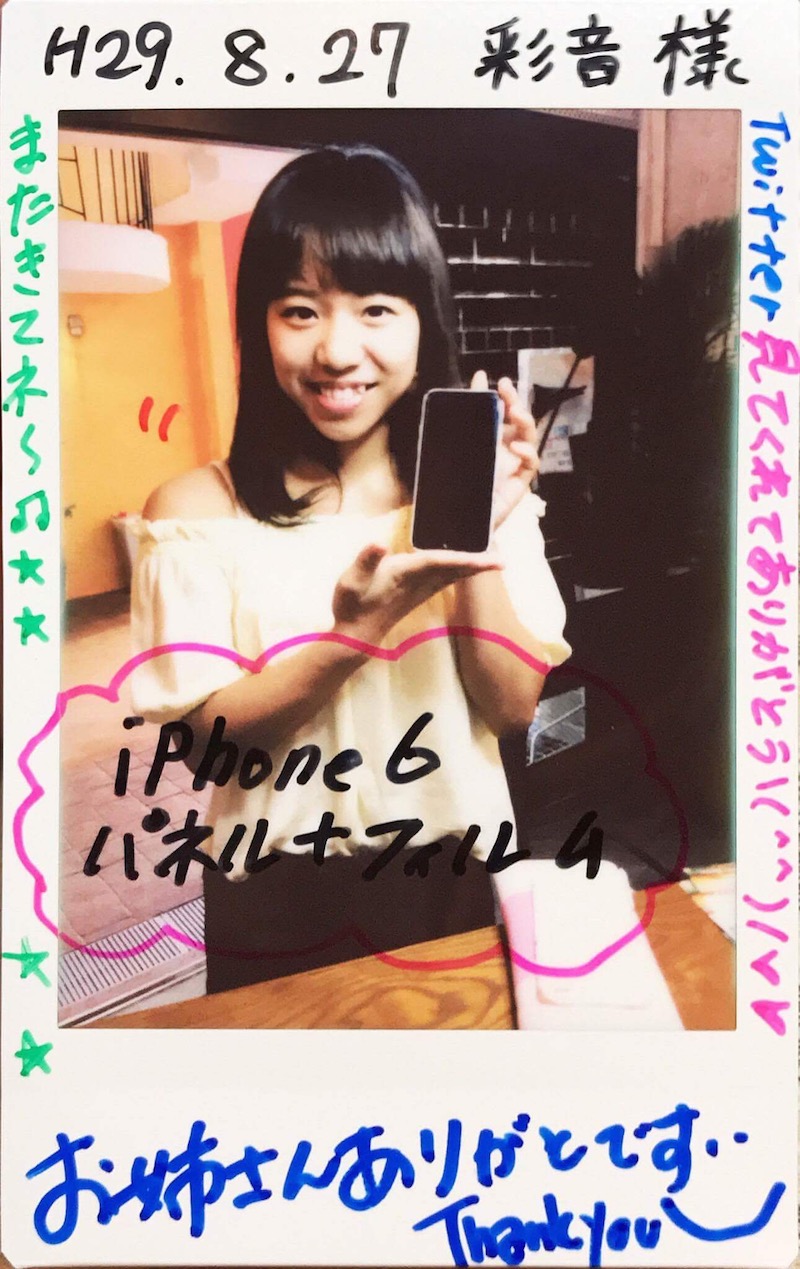 H29. 8. 27 彩音 様
またきてネ〜♫★★
★★
Twitter見てくれてありがとう！(^^)/♥♥
iPhone6
パネル+フィルム
お姉さんありがとです..
Thank you